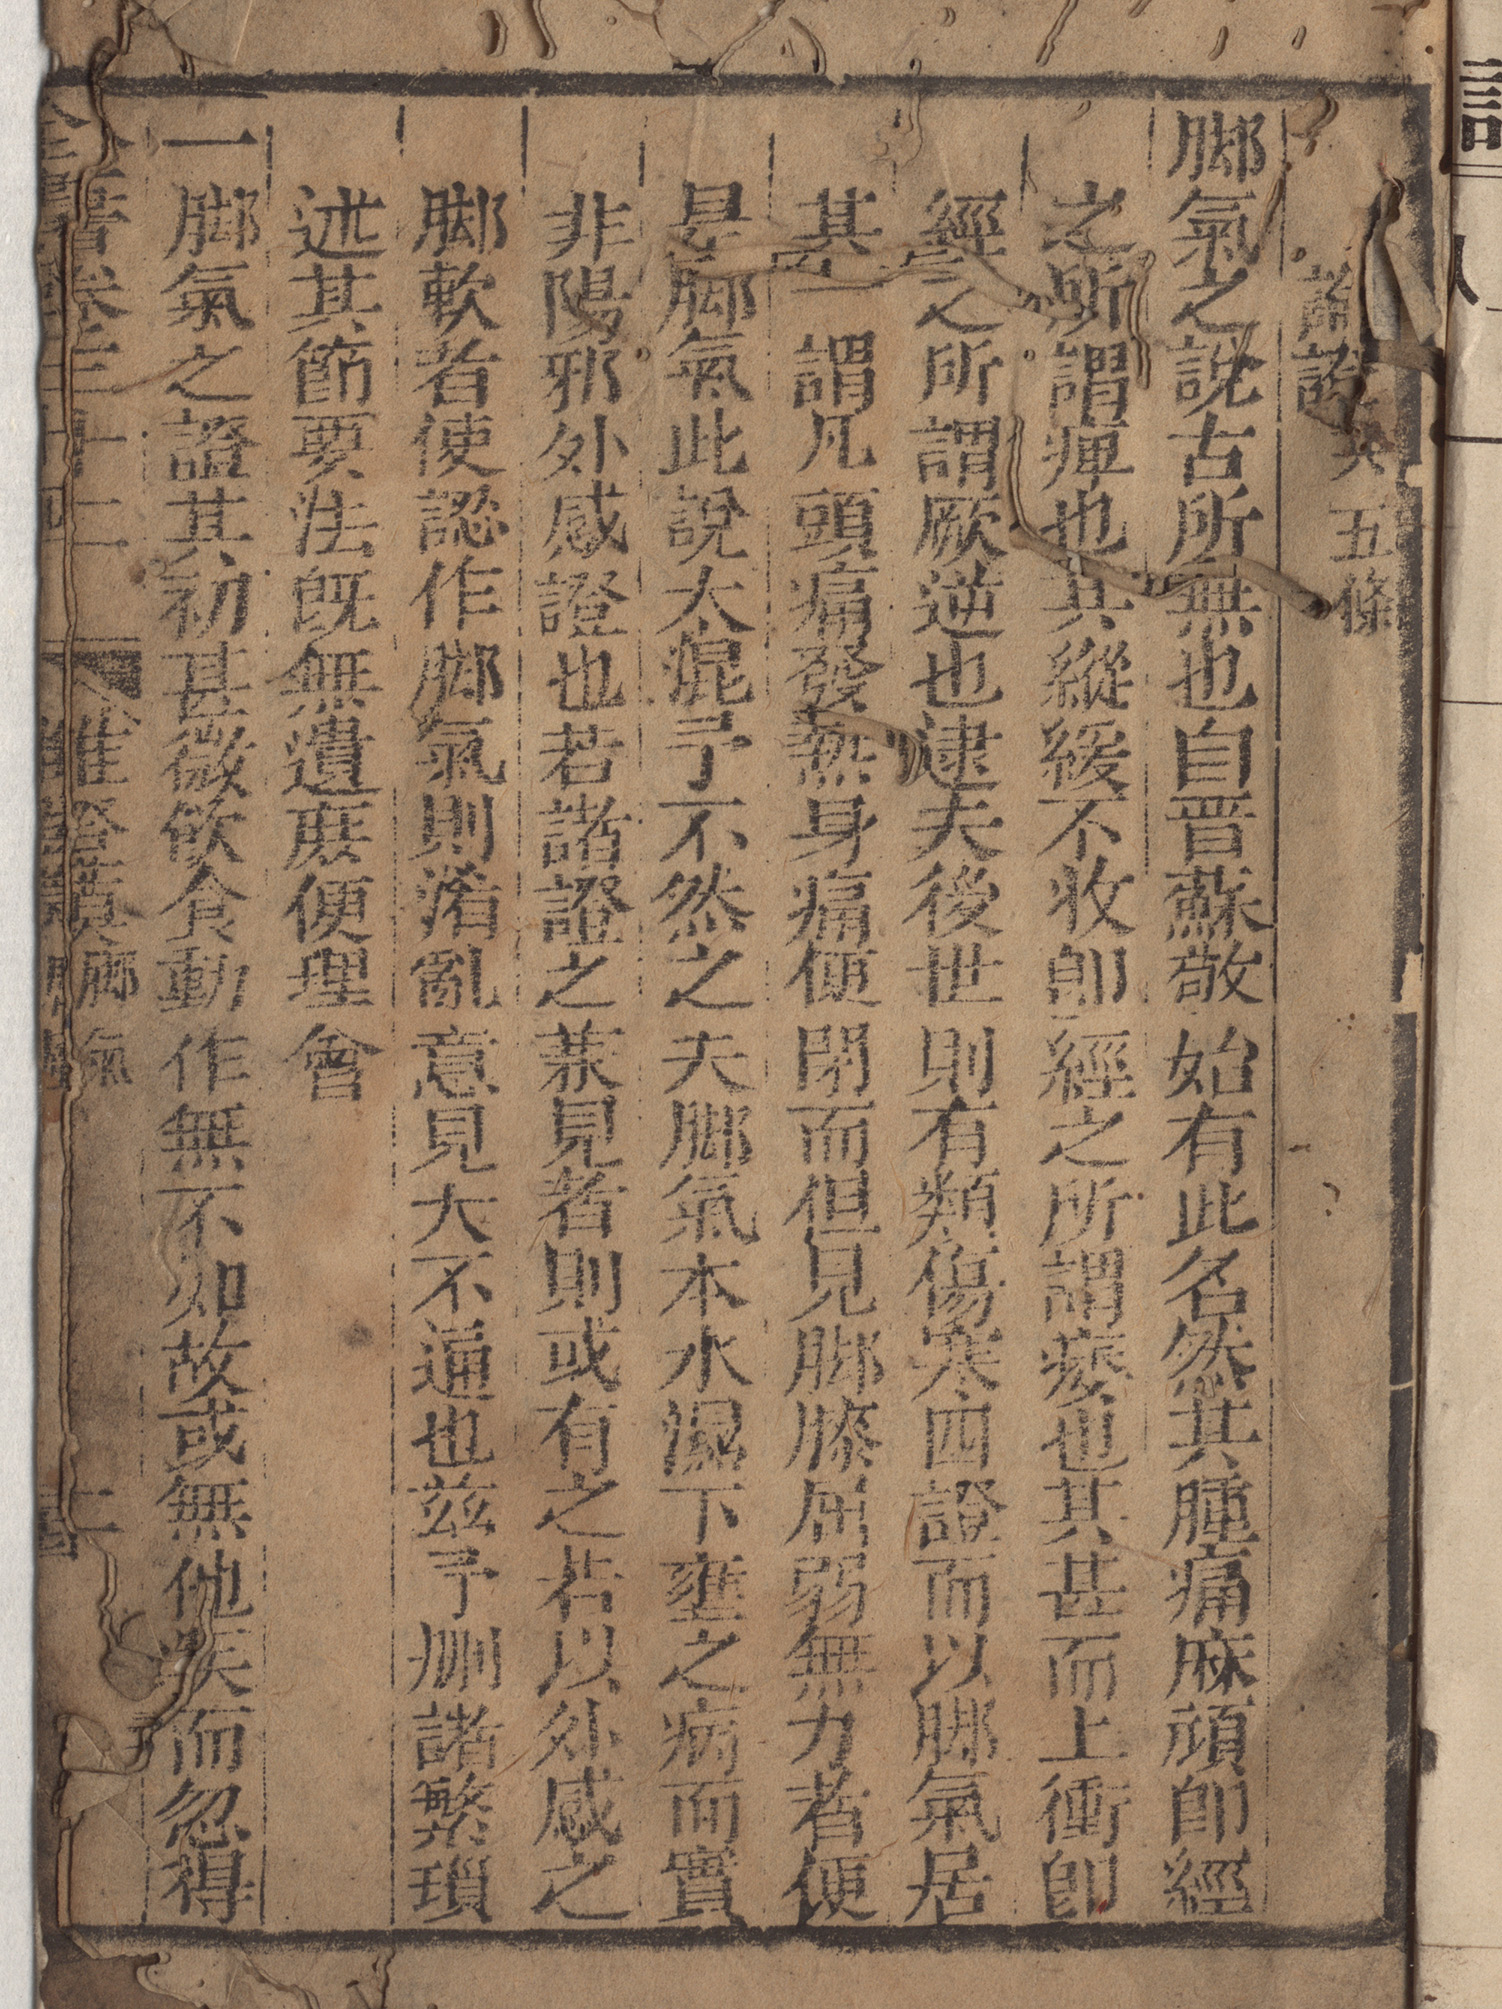 論證 共五條
脚氣之說古所無也自晋蘇敬始有此名然其腫痛麻頑即經
之所謂痺也其縱緩不收即經之所謂痿也其甚而上衝即
經之所謂厥逆也逮夫後世則有類傷寒四證而以脚氣居
其一謂凡頭痛發熱身痛便閉而但見脚膝屈弱無力者便
是脚氣此說太混予不然之夫脚氣本水濕下壅之病而實
非陽邪外感證也若諸證之兼見者則或有之若以外感之
脚軟者使認作脚氣則淆亂意見大不通也兹予刪諸繁瑣
述其節要法旣無遺庶便理會
一脚氣之證其初甚微飲食動作無不如故或無他疾而忽得
全書卷三十二 雜證謨 脚氣